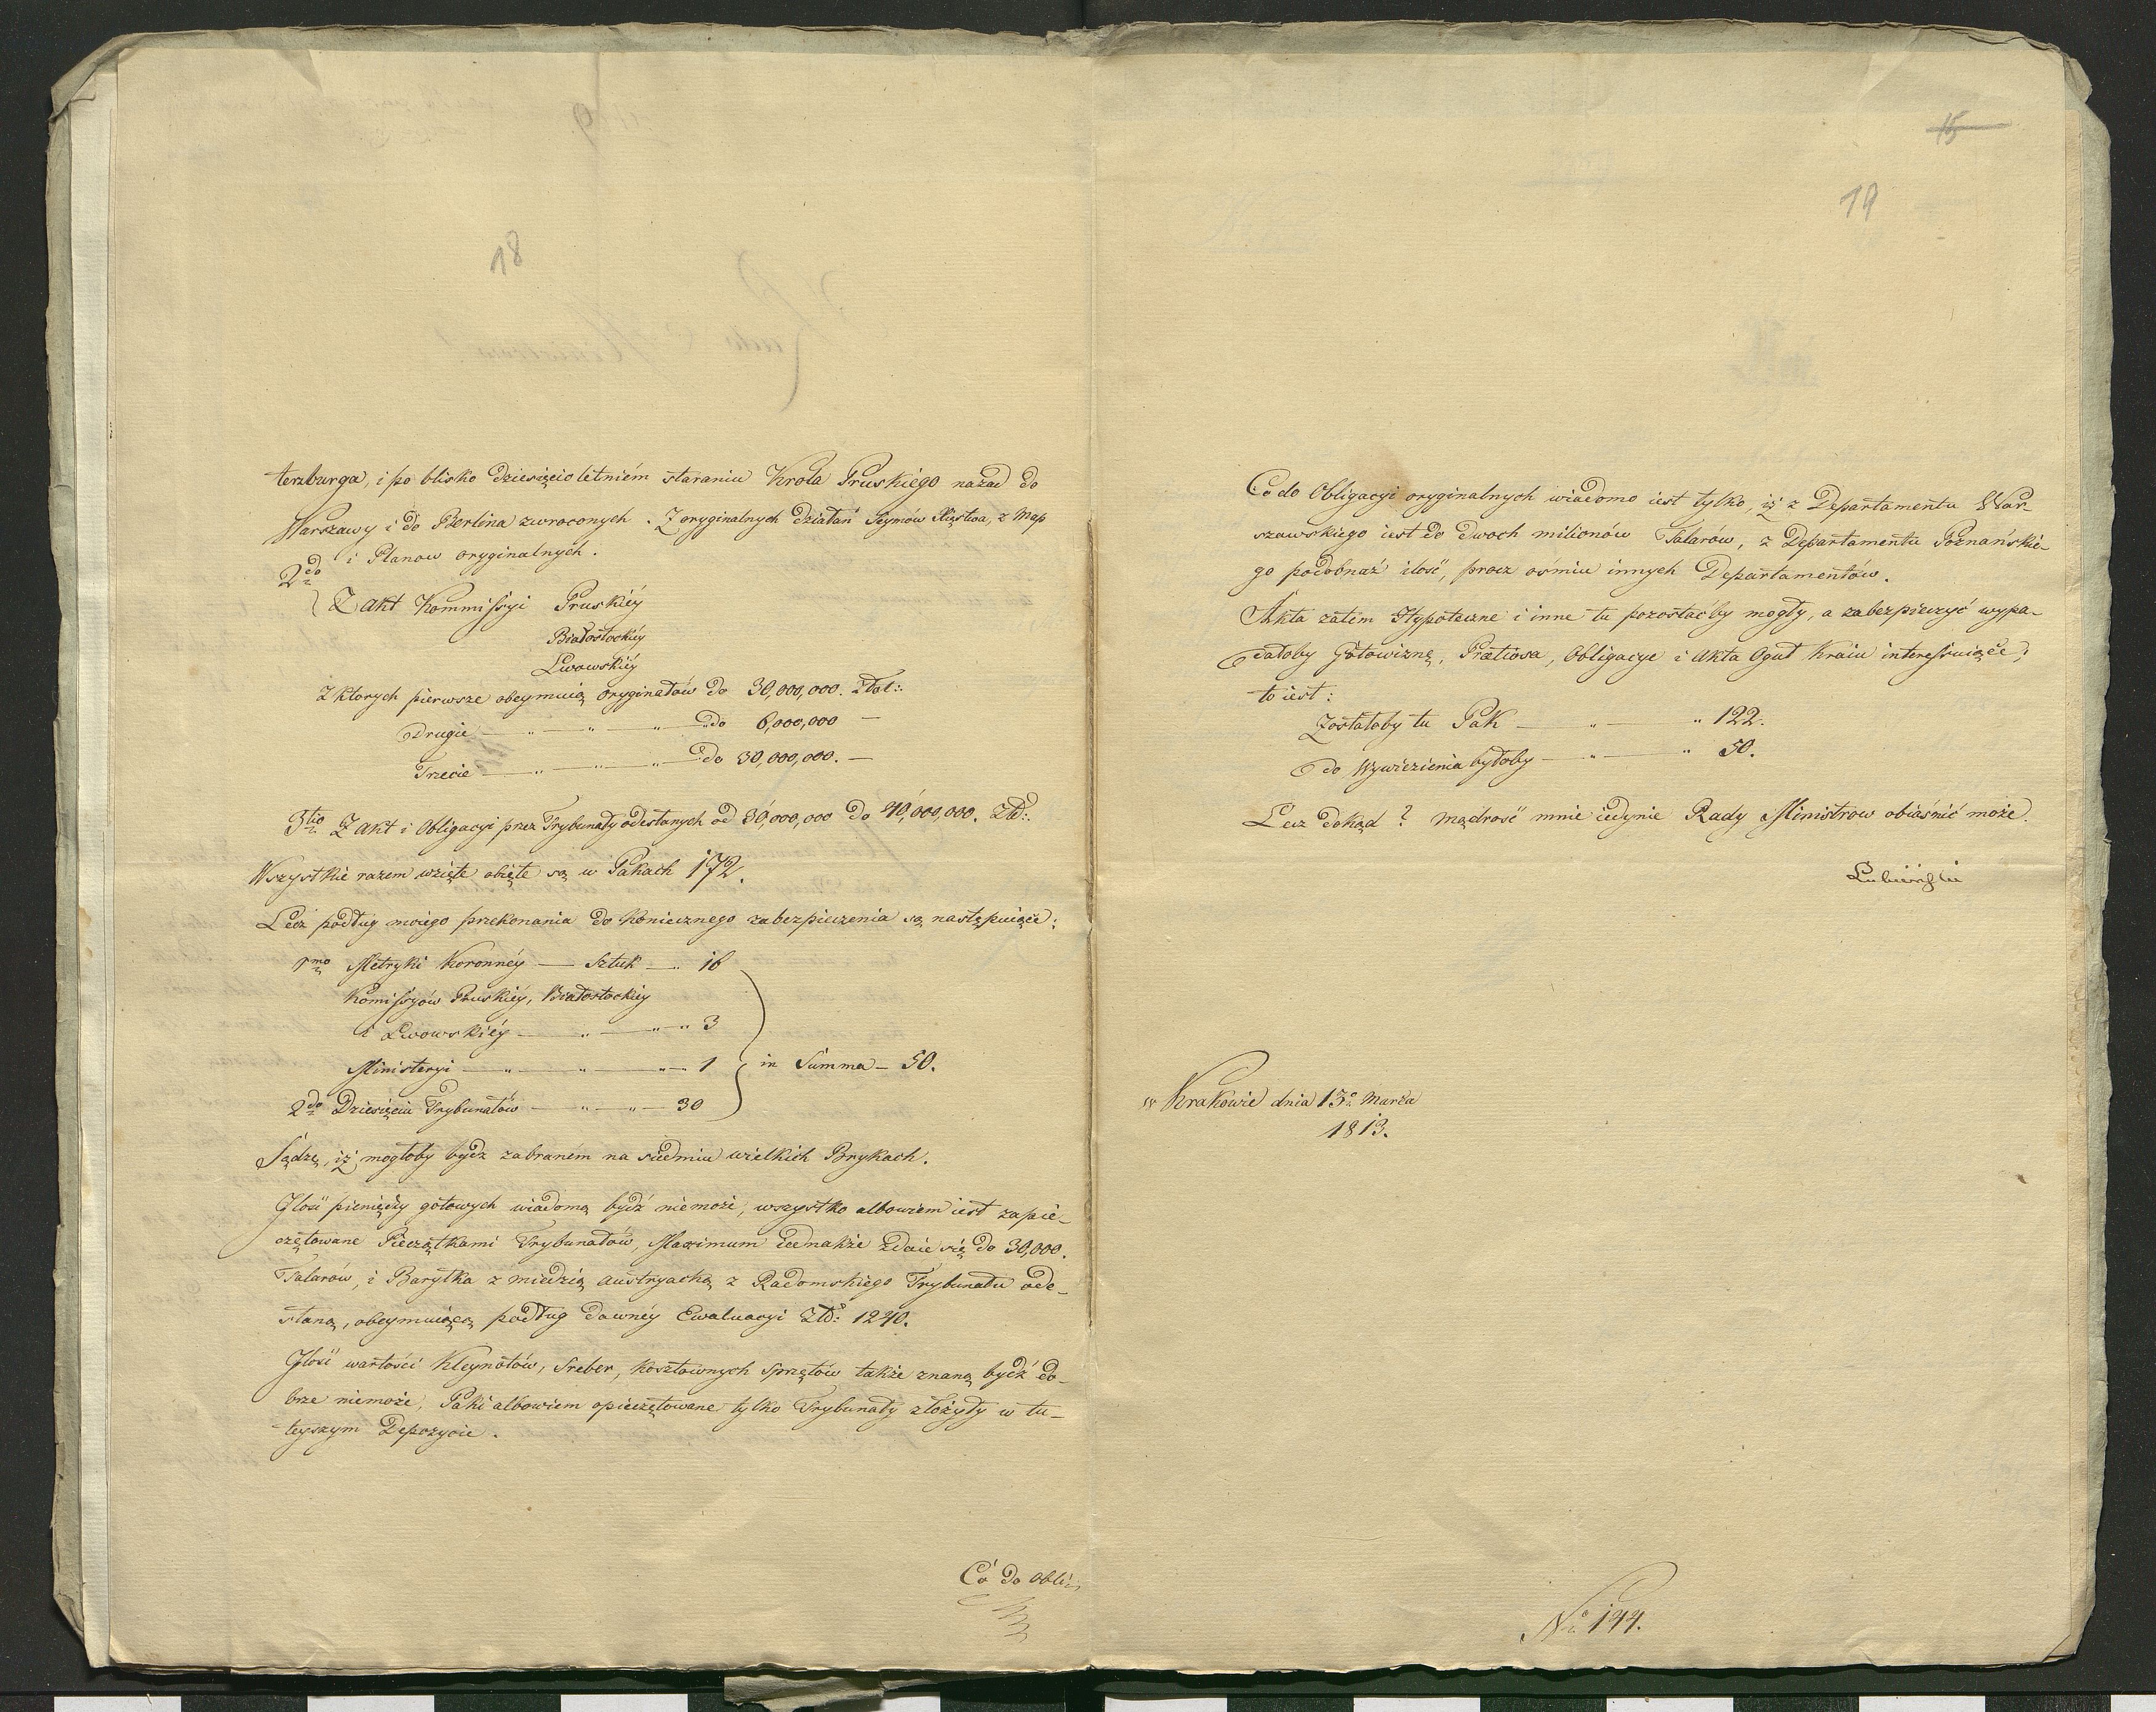 18
terzburga, i po blisko dziesięcio letniém staraniu Krola Pruskiego nazad do
Warszawy i do Berlina zwroconych. Z oryginalnych działań Seymów Xięstwa, z Map
i Planow oryginalnych.
2do Z Akt Kommissyi Pruskiéy
Białostockiéy
Lwowskiéy
Z ktorych pierwsze obeymuią oryginałów do 30,000,000. Złot:
Drugie — „ — „ — „ — do 6,000,000 —
Trzecie — „ — „ — „ — do 30,000,000. —
3tio Z Akt i Obligacyi przez Trybunały odesłanych od 30,000,000 do 40,000,000. Złł:
Wszystkie razem wzięte obięte są w Pakach 172.
Lecz podług moiego przekonania do koniecznego zabezpieczenia są następuiące:
1mo Metryki Koronnéy — Sztuk — „ 16
Komissyów Pruskiéy, Białostockiéy
i Lwowskiéy — „ — „ — „ 3
Ministeryi — „ — „ — „ — 1
in Summa — 50.
2do Dziesięciu Trybunałów — „ — „ — 30
Sądzę, iż mogłoby bydź zabraném na siedmiu wielkich Brykach.
Ilość pieniędzy gotowych wiadomą bydź niemoże, wszystko albowiem iest zapie-
czętowane Pieczątkami Trybunałów, Maximum iednakże zdaie się do 30,000.
Talarów, i Baryłka z miedzią austryacką z Radomskiego Trybunału ode-
słaną, obeymuiącą podług dawnéy Ewaluacyi Złł: 1240.
Ilość wartości Kleynotów, Sreber, kosztownych sprzętów także znaną bydź do-
brze niemoże, Paki albowiem opieczętowane tylko Trybunały złożyły w tu-
teyszym Depozycie.
Co do obli-
15
19
Co do Obligacyi oryginalnych wiadomo iest tylko, iż z Departamentu War-
szawskiego iest do dwoch milionów Talarów, z Departamentu Poznańskie-
go podobnaż ilość, procz ośmiu innych Departamentów.
Akta zatém Hypoteczne i inne tu pozostaćby mogły, a zabezpieczyć wypa-
dałoby Gotowiznę, Pretiosa, Obligacye i Akta Oguł Kraiu interessuiące;
to iest:
Zostałoby tu Pak — „ — „ 122.
do Wywiezienia byłoby — „ — „ 50.
Lecz dokąd? mądrość mnie iedynie Rady Ministrow obiaśnić może.
Łubieński
w Krakowie dnia 13o Marca
1813.
No 144.